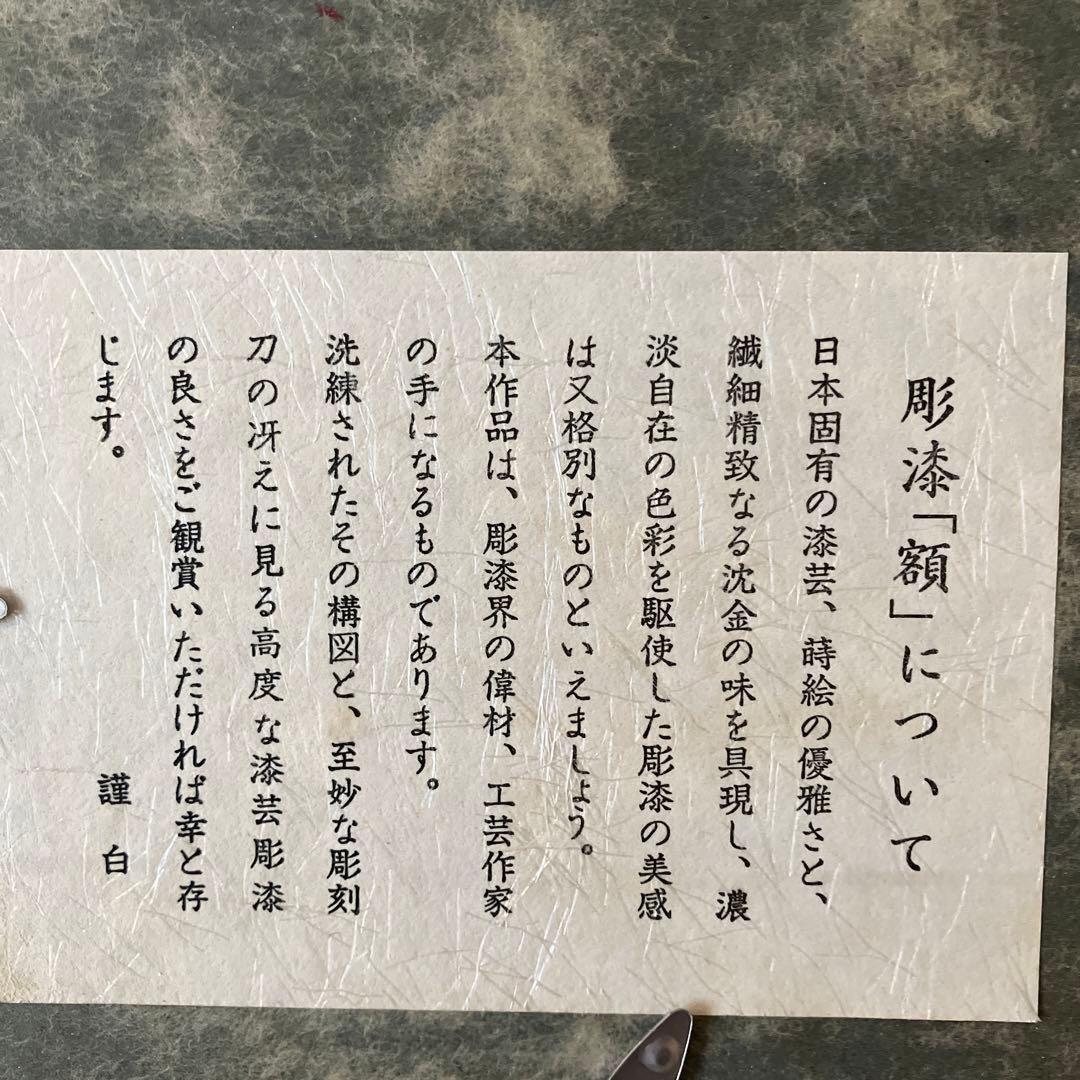 彫漆「額」について
日本固有の漆芸、蒔絵の優雅さと、
繊細精致なる沈金の味を具現し、濃
淡自在の色彩を駆使した彫漆の美感
は又格別なものといえましょう。
本作品は、彫漆界の偉材、工芸作家
の手になるものであります。
洗練されたその構図と、至妙な彫刻
刀の冴えに見る高度な漆芸彫漆
の良さをご観賞いただければ幸と存
じます。
謹白